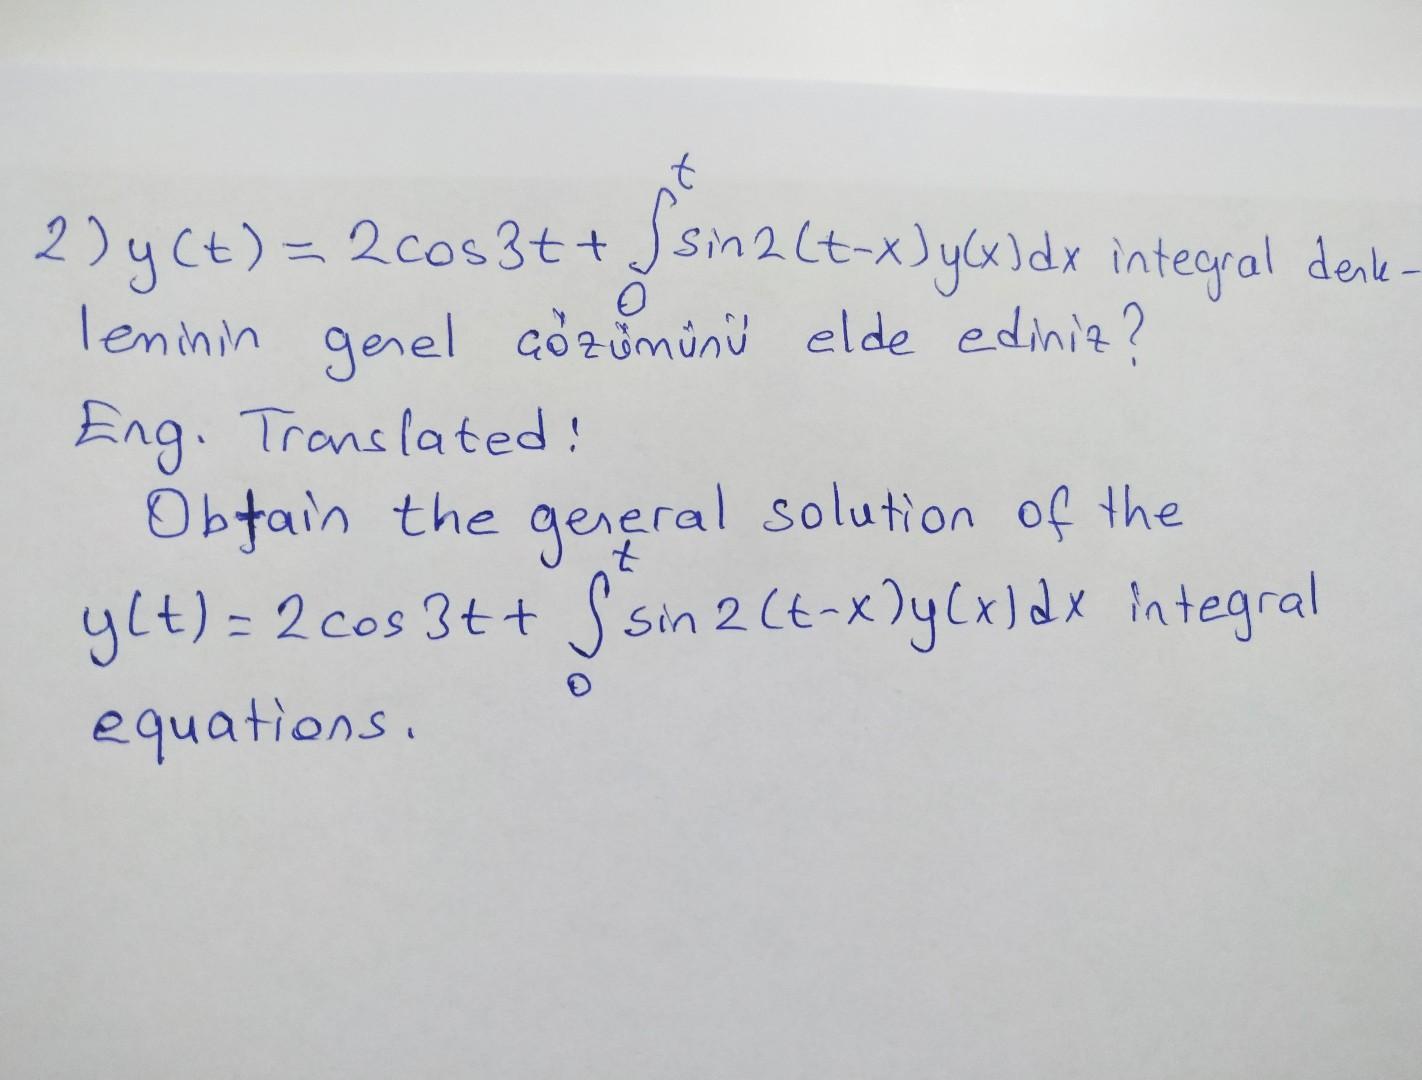 2) y(t) = 2cos3t + ∫₀ᵗ sin2(t-x)y(x)dx integral denk-
leminin genel çözümünü elde ediniz?
Eng. Translated:
Obtain the general solution of the
y(t) = 2cos3t + ∫₀ᵗ sin2(t-x)y(x)dx integral
equations.